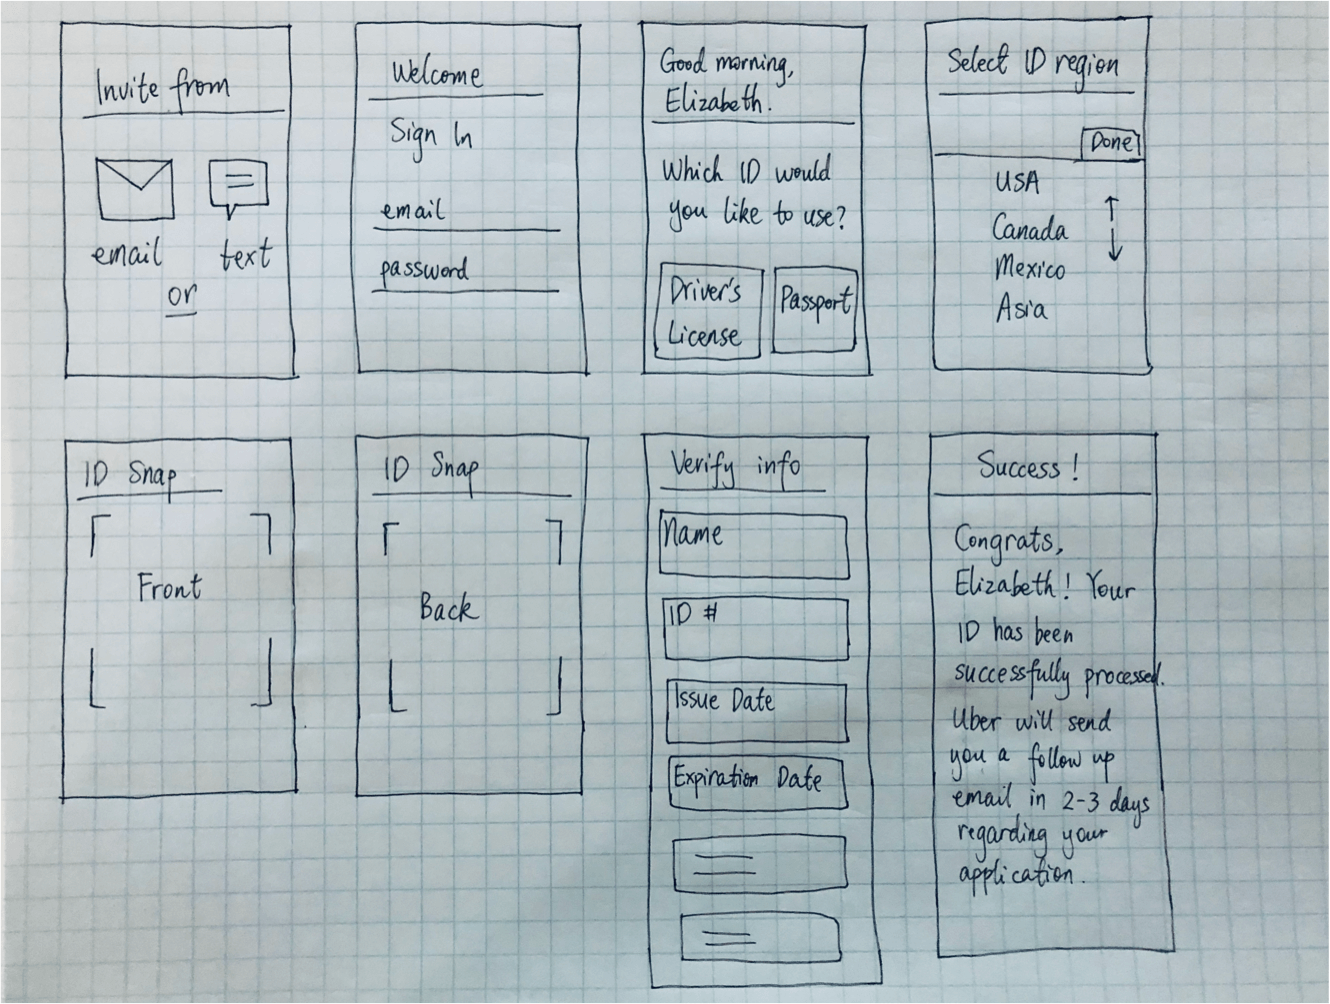 Invite from
email text
or
Welcome
Sign In
email
password
Good morning,
Elizabeth.
Which ID would
you like to use?
Driver's
License
Passport
Select ID region
Done
USA
Canada
Mexico
Asia
ID Snap
Front
ID Snap
Back
Verify info
Name
ID #
Issue Date
Expiration Date
Success!
Congrats,
Elizabeth! Your
ID has been
successfully processed.
Uber will send
you a follow up
email in 2-3 days
regarding your
application.